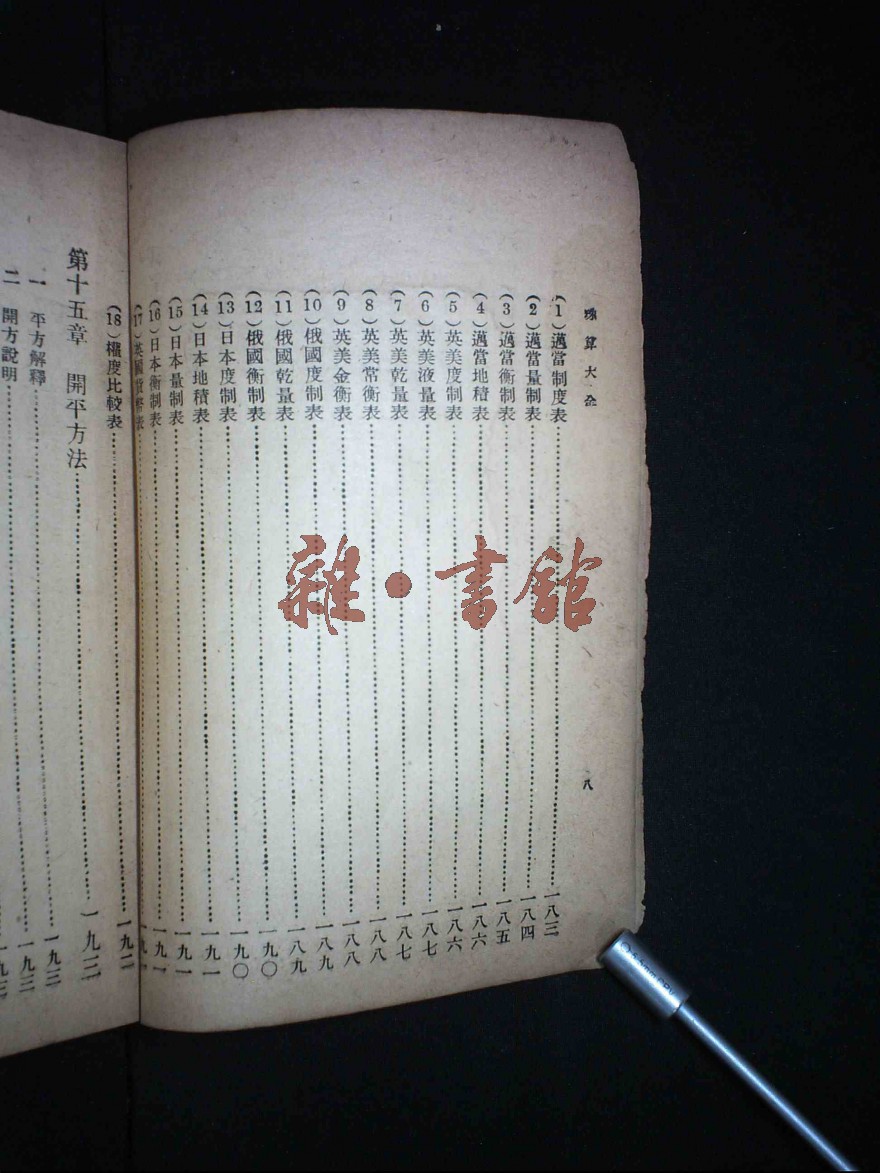 珠算大全
八
(1)邁當制度表……一八三
(2)邁當量制表……一八四
(3)邁當衡制表……一八五
(4)邁當地積表……一八六
(5)英美度制表……一八六
(6)英美液量表……一八七
(7)英美乾量表……一八七
(8)英美常衡表……一八八
(9)英美金衡表……一八八
(10)俄國度制表……一八九
(11)俄國乾量表……一八九
(12)俄國衡制表……一九〇
(13)日本度制表……一九〇
(14)日本地積表……一九一
(15)日本量制表……一九一
(16)日本衡制表……一九一
(17)英國貨幣表……
(18)權度比較表……一九二
第十五章 開平方法……一九三
一 平方解釋……一九三
二 開方說明……一九三
雜·書館